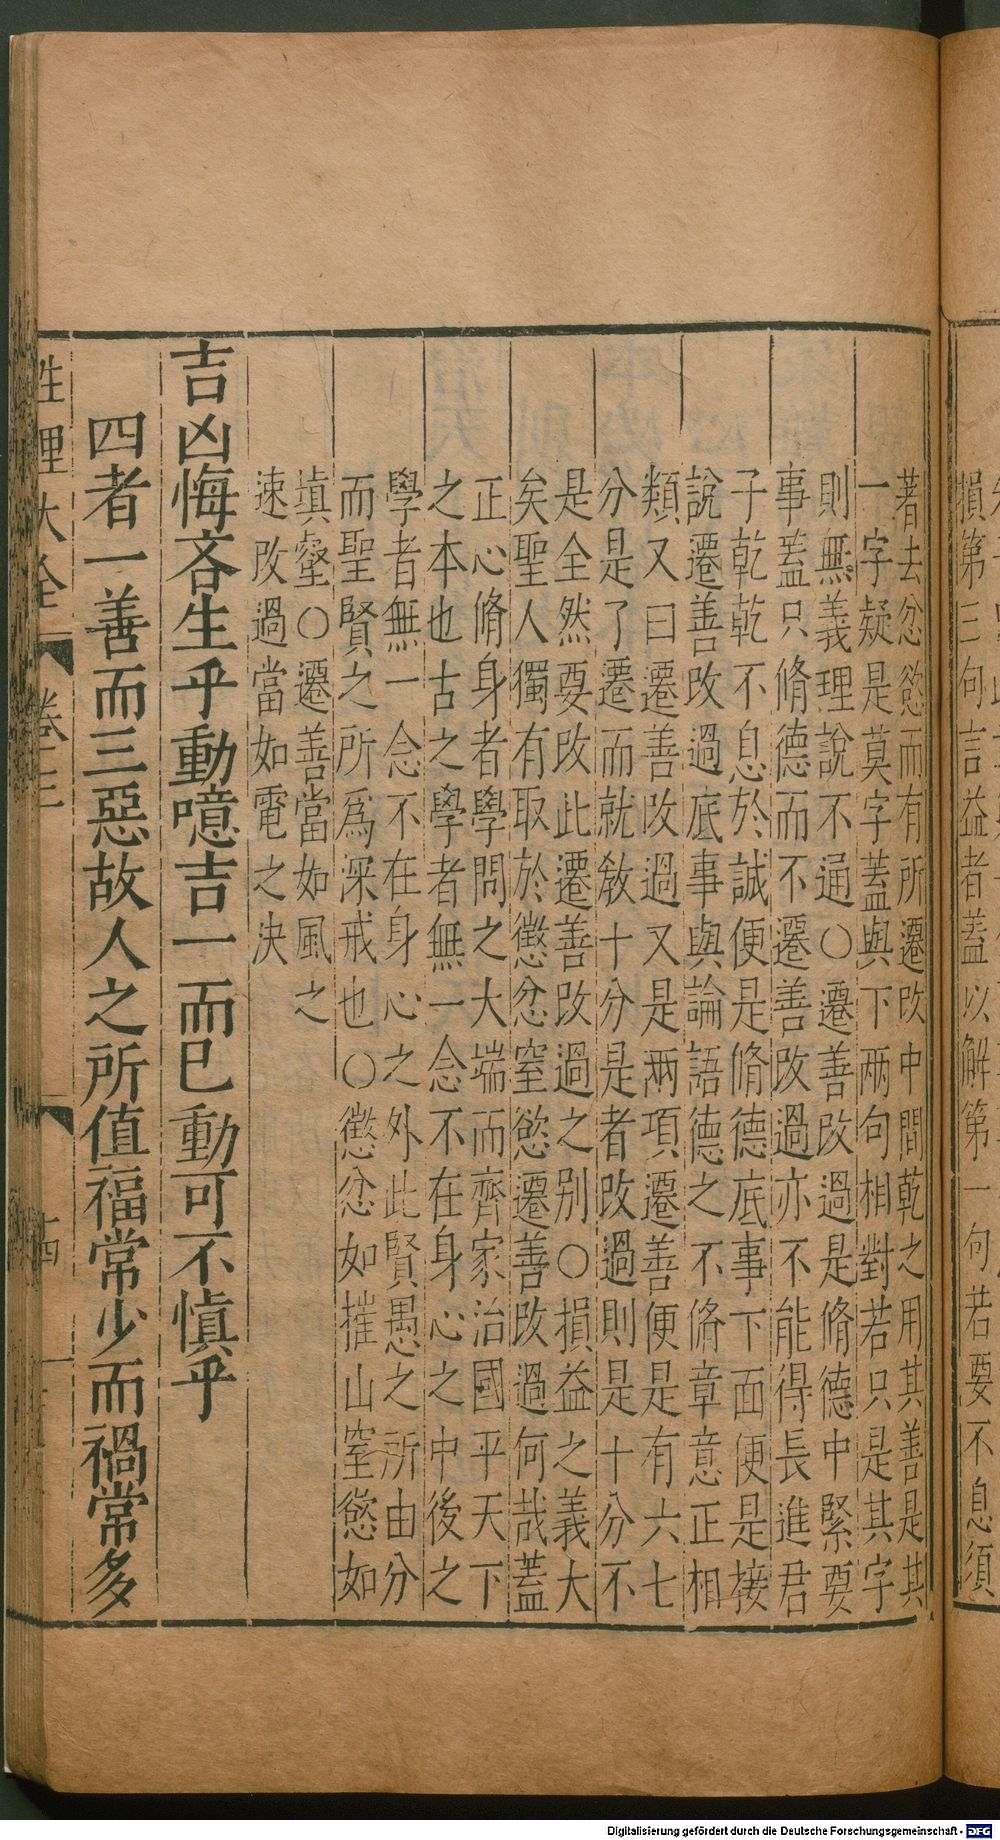 著去忿慾而有所遷改中間乾之用其善是其
一字疑是莫字蓋與下兩句相對若只是其字
則無義理說不通○遷善改過是脩德中緊要
事蓋只脩德而不遷善改過亦不能得長進君
子乾乾不息於誠便是脩德底事下面便是接
說遷善改過底事與論語德之不脩章意正相
類又曰遷善改過又是兩項遷善便是有六七
分是了遷而就教十分是者改過則是十分不
是全然要改此遷善改過之别○損益之義大
矣聖人獨有取於懲忿窒慾遷善改過何哉蓋
正心脩身者學問之大端而齊家治國平天下
之本也古之學者無一念不在身心之中後之
學者無一念不在身心之外此賢愚之所由分
而聖賢之所爲深戒也○懲忿如摧山窒慾如
塡壑○遷善當如風之
速改過當如電之決
吉凶悔吝生乎動噫吉一而已動可不慎乎
四者一善而三惡故人之所值福常少而禍常多
性理大全 卷三 十四
損第三句言益者蓋以解第一句若要不息須
Digitalisierung gefördert durch die Deutsche Forschungsgemeinschaft - DFG